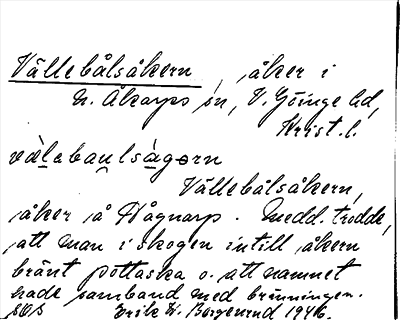 Vällebålsåkern, åker i
N. Åkarps sn, V. Göinge hd,
Krist. l.
välabaulsågorn
Vällebålsåkern,
åker å Hågnarp. Medd. trodde,
att man i skogen intill åkern
bränt pottaska o. att namnet
hade samband med bränningen.
Erik W. Borgenrud 1946.